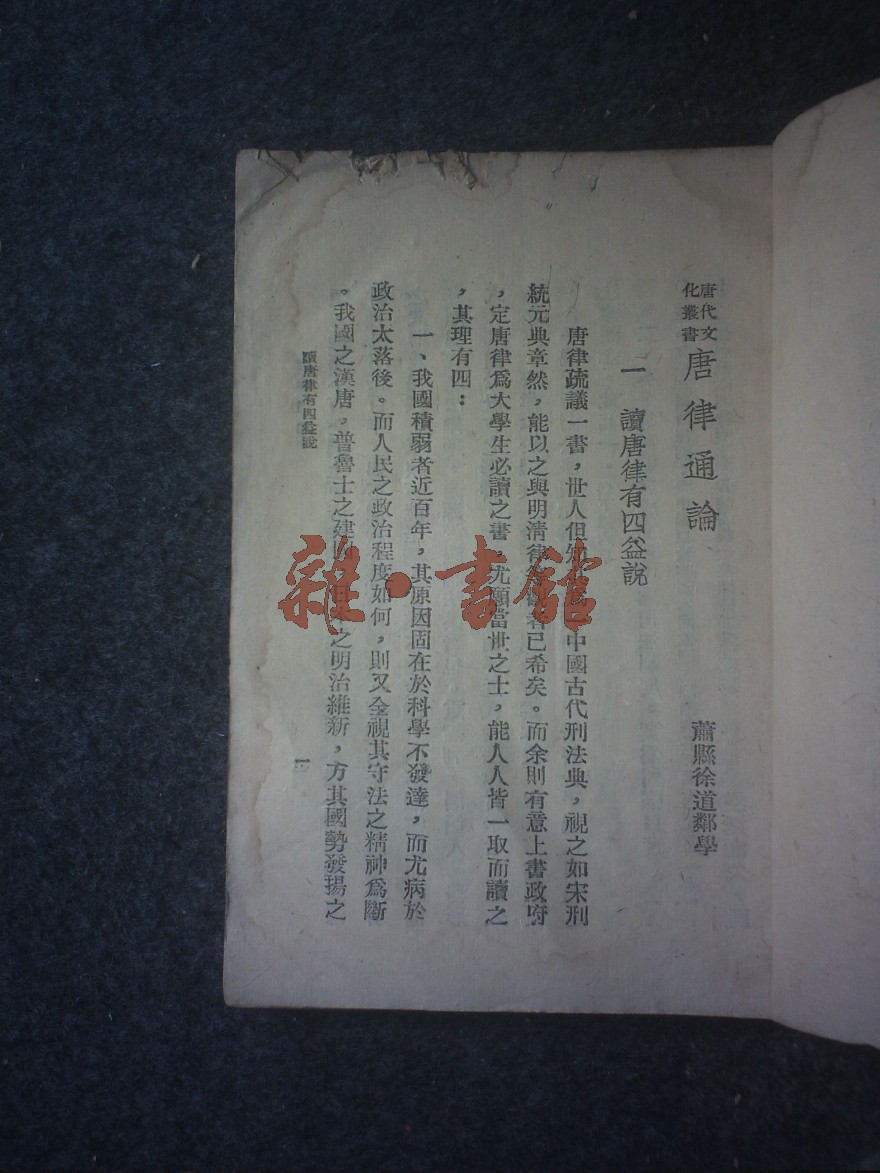 唐代文化叢書
唐律通論
蕭縣徐道鄰學
一　讀唐律有四益說
唐律疏議一書，世人但知中國古代刑法典，視之如宋刑
統元典章然，能以之與明清律者已希矣。而余則有意上書政府
，定唐律爲大學生必讀之書，尤願當世之士，能人人皆一取而讀之
，其理有四：
一、我國積弱者近百年，其原因固在於科學不發達，而尤病於
政治太落後。而人民之政治程度如何，則又全視其守法之精神爲斷
。我國之漢唐，普魯士之建國，之明治維新，方其國勢發揚之
讀唐律有四益說
一
雜·書館